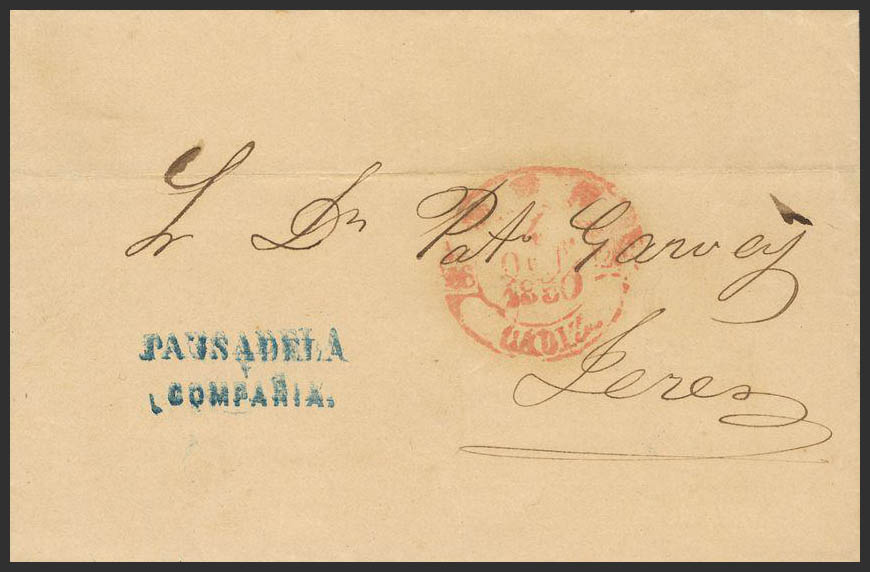 Sr Dn Pato Garvey
Jerez
PAUSADELA
Y
COMPAÑIA.
OCT
1880
CADIZ